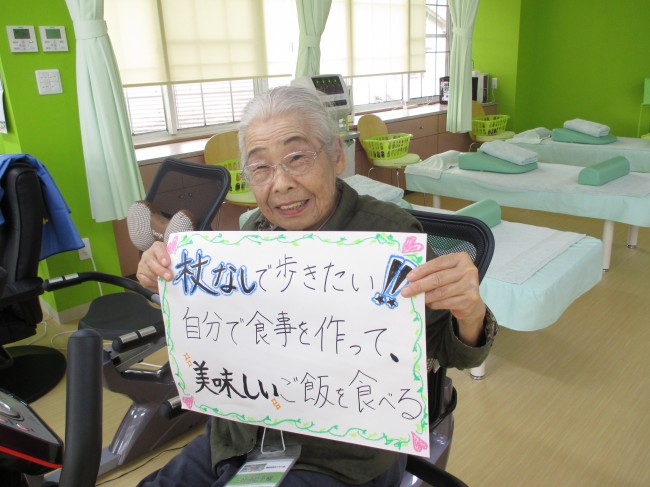 杖なしで歩きたい!!
自分で食事を作って、
美味しいご飯を食べる